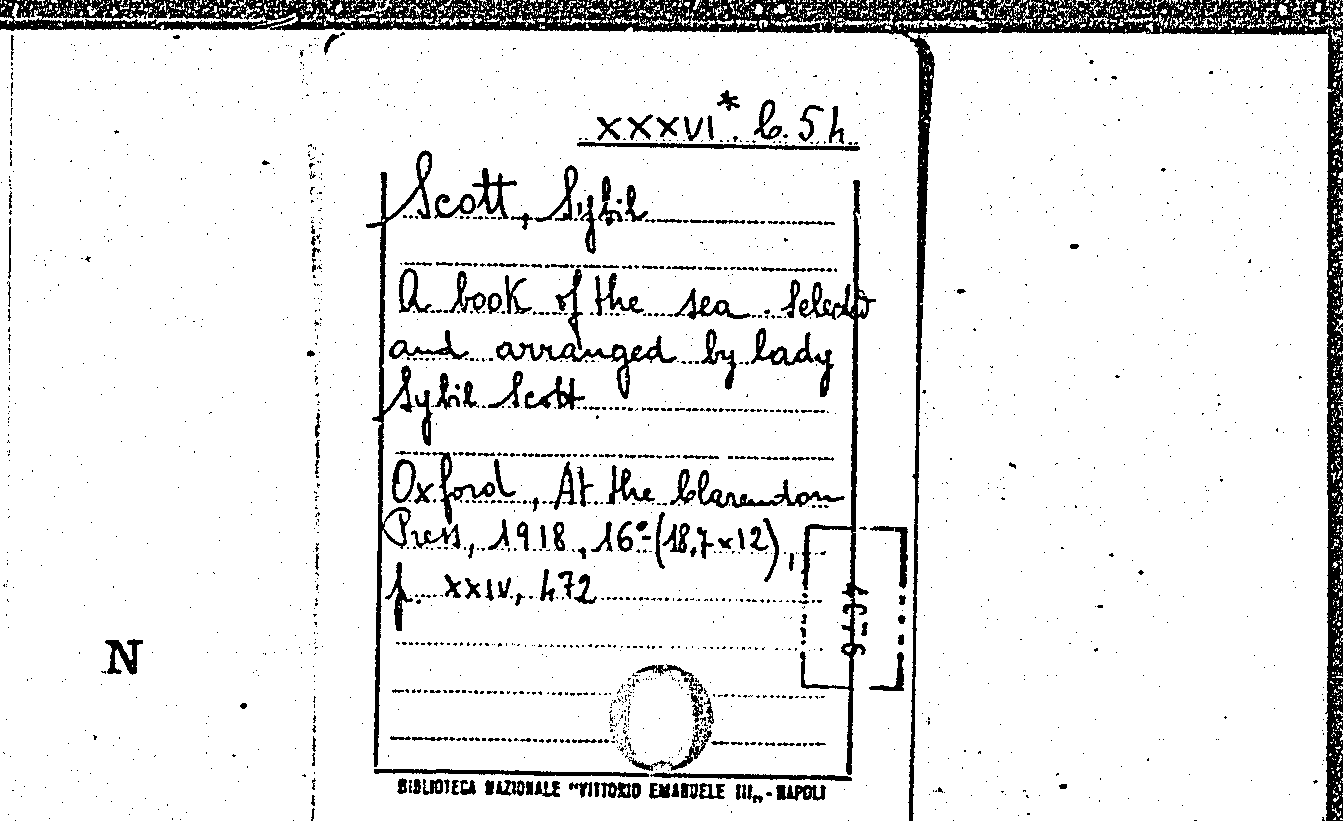 XXXVI*. b. 54
Scott, Sybil
A book of the sea. Selected
and arranged by lady
Sybil Scott
Oxford, At the Clarendon
Press, 1918, 16°-(18,7x12),
p. XXIV, 472
N
BIBLIOTECA NAZIONALE "VITTORIO EMANUELE III„ - NAPOLI